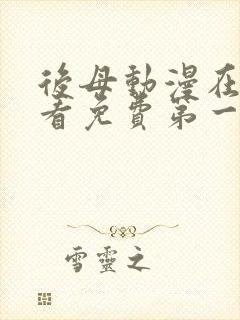 後母動漫在
看免費第一
雪靈之